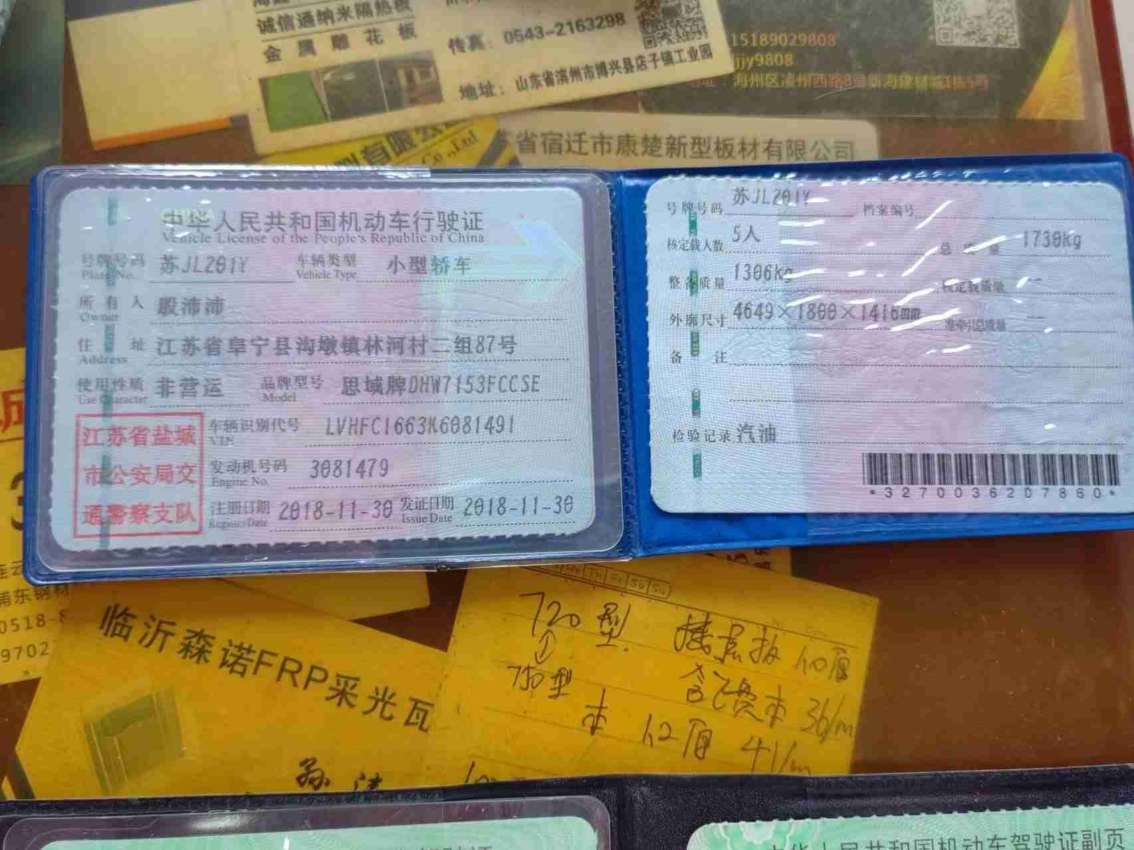 诚信通纳米隔热板
金属雕花板
传真：0543-2163298
地址：山东省滨州市博兴县店子镇工业园
15189029808
jjy9808
海州区凌州西路8号新海建材城
Co.,Ltd
省宿迁市康楚新型板材有限公司
中华人民共和国机动车行驶证
Vehicle License of the People's Republic of China
号牌号码 苏JL201Y 车辆类型 小型轿车
Plate No. Vehicle Type
所有人 殷沛沛
Owner
住址 江苏省阜宁县沟墩镇林河村二组87号
Address
使用性质 非营运 品牌型号 思域牌DHW7153FCCSE
Use Character Model
江苏省盐城
市公安局交
通警察支队
车辆识别代号 LVHFC1663K6081491
VIN
发动机号码 3081479
Engine No.
注册日期 2018-11-30 发证日期 2018-11-30
Register Date Issue Date
号牌号码 苏JL201Y 档案编号
核定载人数 5人 总质量 1730kg
整备质量 1306kg 核定载质量 --
外廓尺寸 4649×1800×1416mm 准牵引总质量 --
备注
检验记录 汽油
*3270036207860*
浦东钢材
0518-8
9702
临沂森诺FRP采光瓦
720型
750型
本 1.2厚 41/m
36/m
中华人民共和国机动车驾驶证副页